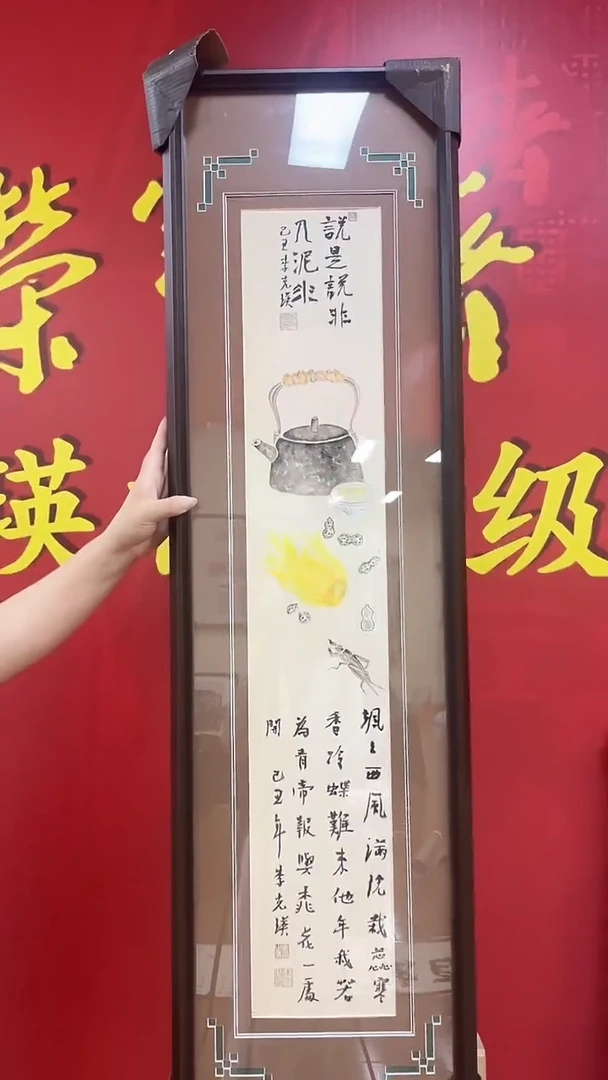 說是說非
己丑李克瑛
颯々西風滿院栽蕊寒
香冷蝶難來他年我若
為青帝報與桃花一處
開
己丑年李克瑛
榮
瑛 级